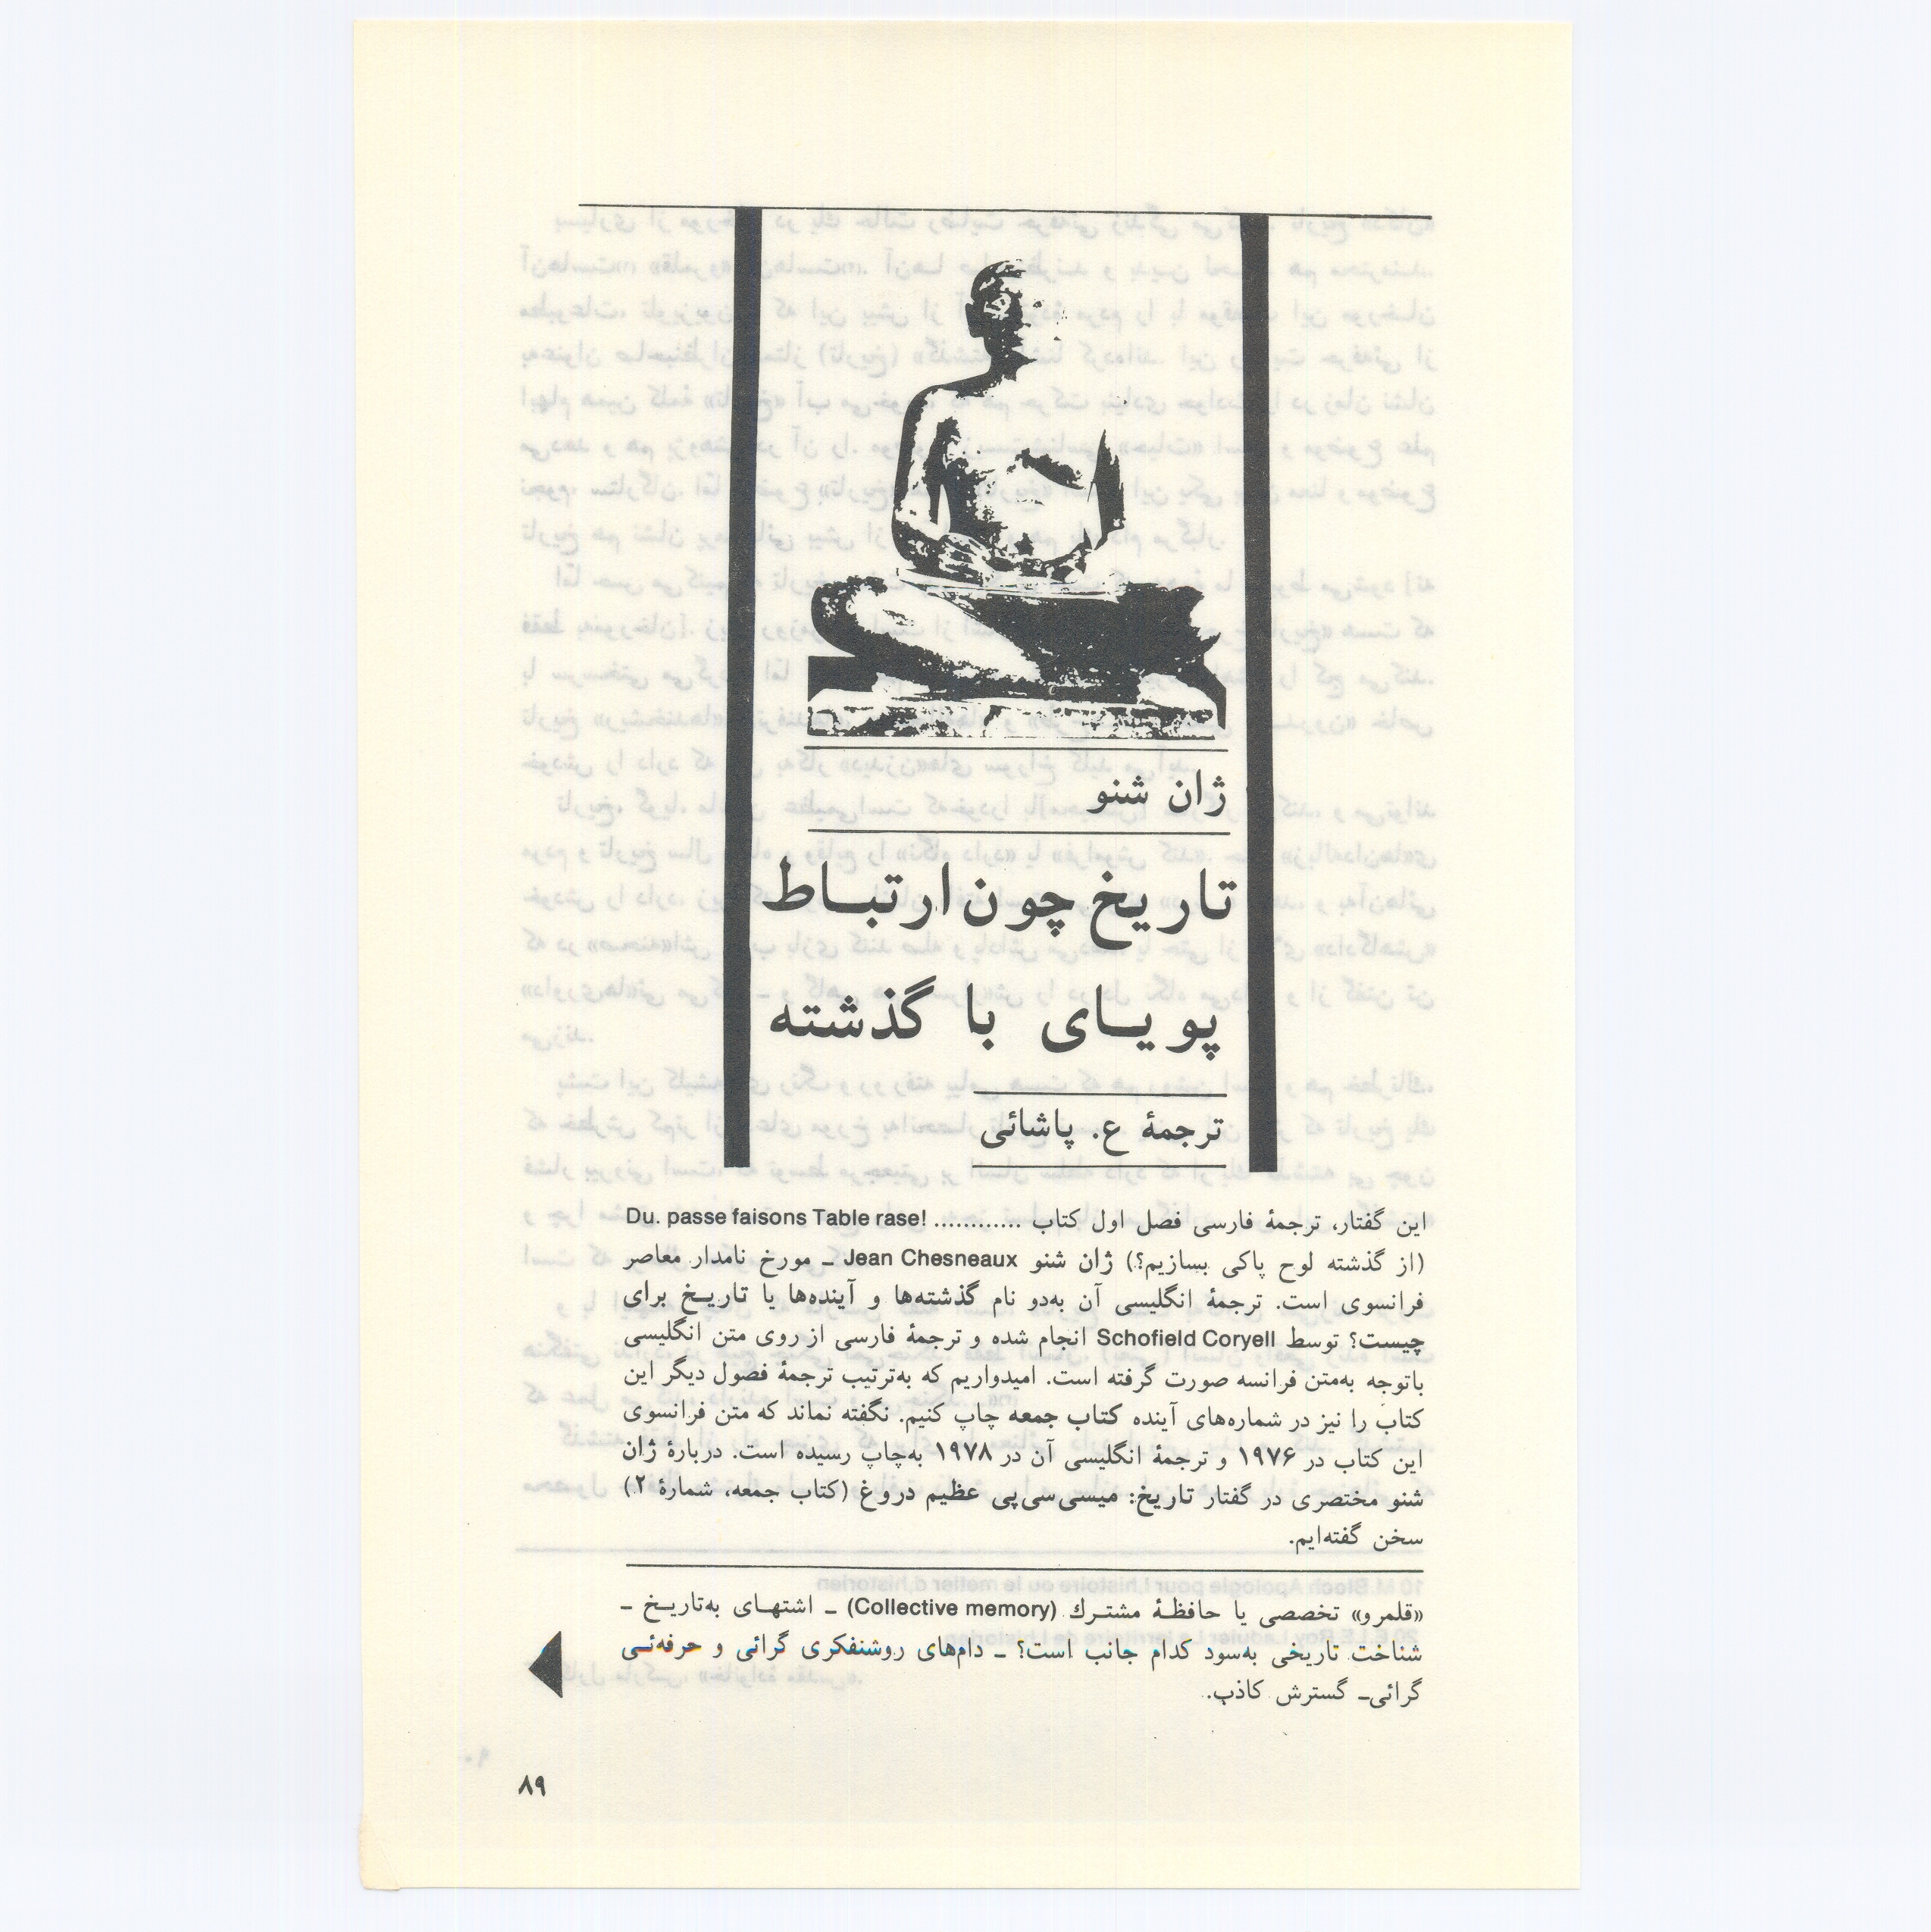 ژان شنو
تاریخ چون ارتباط
پویای با گذشته
ترجمهٔ ع. پاشائی
این گفتار، ترجمهٔ فارسی فصل اول کتاب ............ Du. passe faisons Table rase!
(از گذشته لوح پاکی بسازیم؟) ژان شنو Jean Chesneaux ـ مورخ نامدار معاصر
فرانسوی است. ترجمهٔ انگلیسی آن به‌دو نام گذشته‌ها و آینده‌ها یا تاریخ برای
چیست؟ توسط Schofield Coryell انجام شده و ترجمهٔ فارسی از روی متن انگلیسی
باتوجه به‌متن فرانسه صورت گرفته است. امیدواریم که به‌ترتیب ترجمهٔ فصول دیگر این
کتاب را نیز در شماره‌های آینده کتاب جمعه چاپ کنیم. نگفته نماند که متن فرانسوی
این کتاب در ۱۹۷۶ و ترجمهٔ انگلیسی آن در ۱۹۷۸ به‌چاپ رسیده است. دربارهٔ ژان
شنو مختصری در گفتار تاریخ: میسی‌سی‌پی عظیم دروغ (کتاب جمعه، شمارهٔ ۲)
سخن گفته‌ایم.
«قلمرو» تخصصی یا حافظهٔ مشترك (Collective memory) ـ اشتهای به‌تاریخ ـ
شناخت تاریخی به‌سود کدام جانب است؟ ـ دام‌های روشنفکری گرائی و حرفه‌ئی
گرائی‌ـ گسترش کاذب.
۸۹